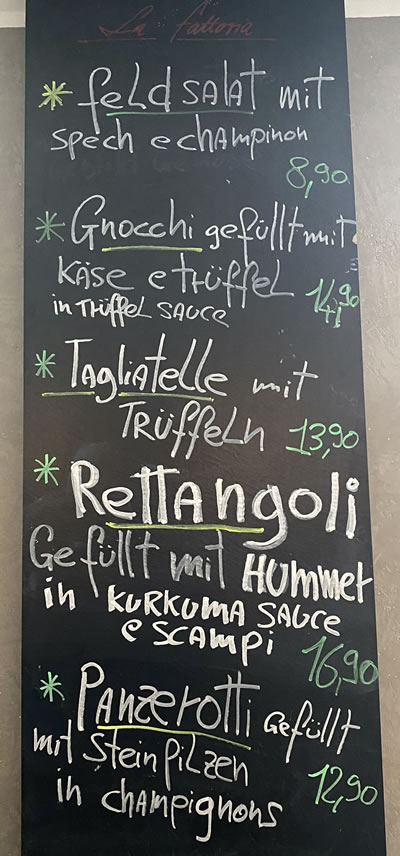 La fattoria
* feldsalat mit
spech e champinon
8,90
* Gnocchi gefüllt mit
Käse e trüffel
in Trüffel sauce 14,90
* Tagliatelle mit
Trüffeln 13,90
* Rettangoli
Gefüllt mit Hummer
in KURKUMA SAUCE
e scampi
16,90
* Panzerotti gefüllt
mit Steinpilzen
in champignons 12,90